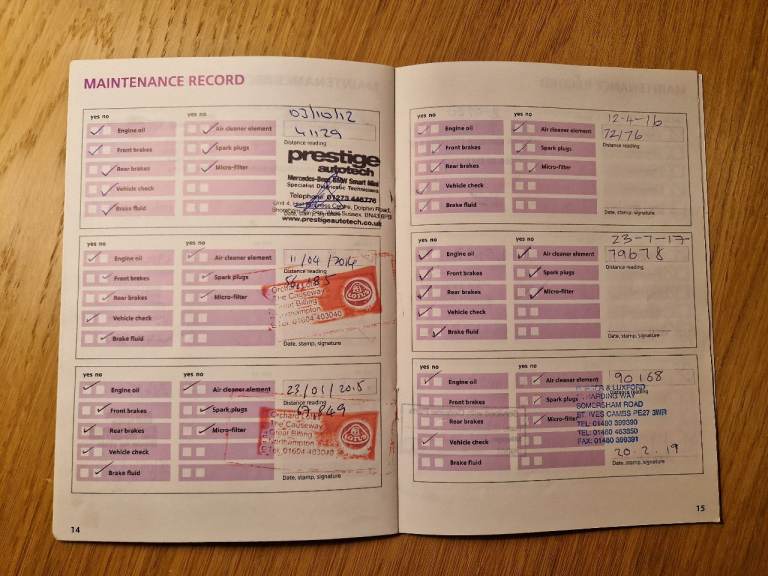 MAINTENANCE RECORD
yes no
yes no
03/10/12
Engine oil
Air cleaner element
41129
Front brakes
Spark plugs
Distance reading
Rear brakes
Micro-filter
prestige
autotech
Mercedes-Benz BMW Smart Mini
Specialist Diagnostic Technicians
Vehicle check
Telephone 01273 446776
Brake fluid
Date, stamp, signature
www.prestigeautotech.co.uk
yes no
yes no
11/04/2014
Engine oil
Air cleaner element
Distance reading
Front brakes
Spark plugs
Rear brakes
Micro-filter
The Causeway
Great Billing
Northampton
Tel. 01604 403040
LOTUS
Vehicle check
Brake fluid
Date, stamp, signature
yes no
yes no
23/01/2015
Engine oil
Air cleaner element
Distance reading
67,849
Front brakes
Spark plugs
Rear brakes
Micro-filter
The Causeway
Great Billing
Northampton
Tel. 01604 403040
LOTUS
Vehicle check
Brake fluid
Date, stamp, signature
14
yes no
yes no
12-4-16
Engine oil
Air cleaner element
72176
Front brakes
Spark plugs
Distance reading
Rear brakes
Micro-filter
Vehicle check
Brake fluid
Date, stamp, signature
yes no
yes no
23-7-17
Engine oil
Air cleaner element
79678
Front brakes
Spark plugs
Distance reading
Rear brakes
Micro-filter
Vehicle check
Brake fluid
Date, stamp, signature
yes no
yes no
90168
Engine oil
Air cleaner element
Front brakes
Spark plugs
Rear brakes
Micro-filter
& LUXFORD
HARDING WAY
SOMERSHAM ROAD
ST. IVES CAMBS PE27 3WR
TEL: 01480 399390
TEL: 01480 463850
FAX: 01480 399391
Vehicle check
Brake fluid
20.2.19
Date, stamp, signature
15